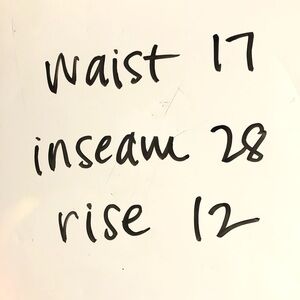 waist 17
inseam 28
rise 12